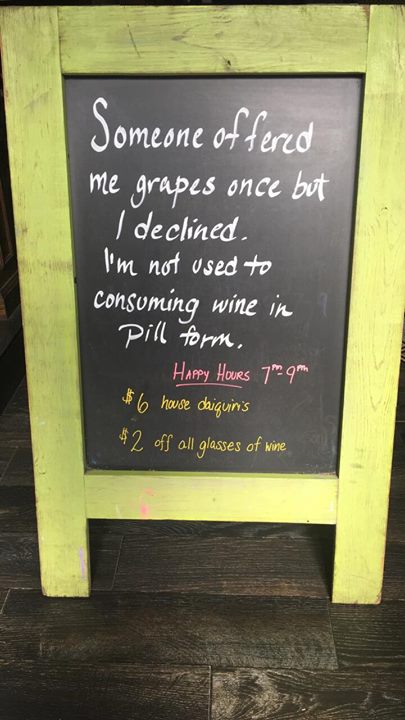 Someone offered
me grapes once but
I declined.
I'm not used to
consuming wine in
pill form.
HAPPY HOURS 7pm 9pm
$6 house daiquiris
$2 off all glasses of wine